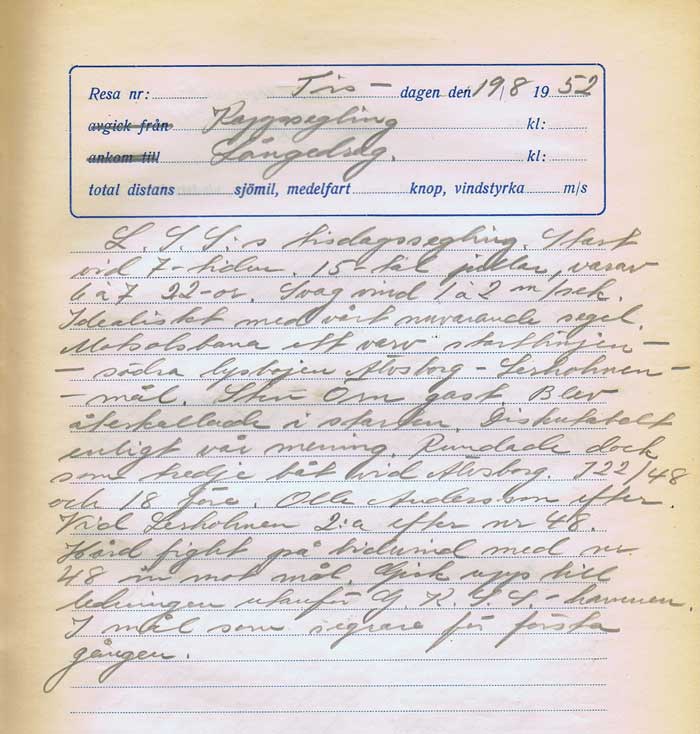 Resa nr: Tis- dagen den 19/8 1952
avgick från Kappsegling kl:
ankom till Långedrag. kl:
total distans sjömil, medelfart knop, vindstyrka m/s
L. S. S:s tisdagssegling. Start
vid 7-tiden. 15-tal jullar, varav
6 à 7 22-or. Svag vind 1 à 2 m/sek.
Idealiskt med vårt nuvarande segel.
Motsolsbana ett varv startlinjen -
- södra lysbojen Älvsborg - Lerholmen -
- mål. Sten Örn gast. Blev
återkallade i starten. Diskutabelt
enligt vår mening. Rundade dock
som tredje båt vid Älvsborg. J22/48
och 18 före. Olle Andersson efter.
Vid Lerholmen 2:a efter nr 48.
Hård fight på bidevind med nr
48 in mot mål. Gick upp till
ledningen utanför G. K. S. S.-hamnen.
I mål som segrare för första
gången.